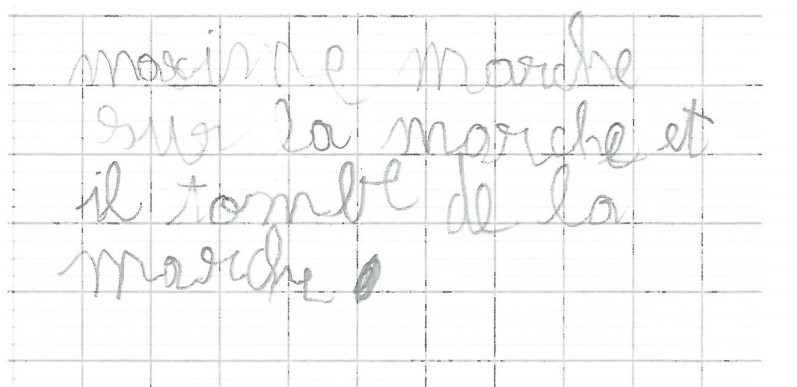 maxime marche
sur la marche et
il tombe de la
marche.